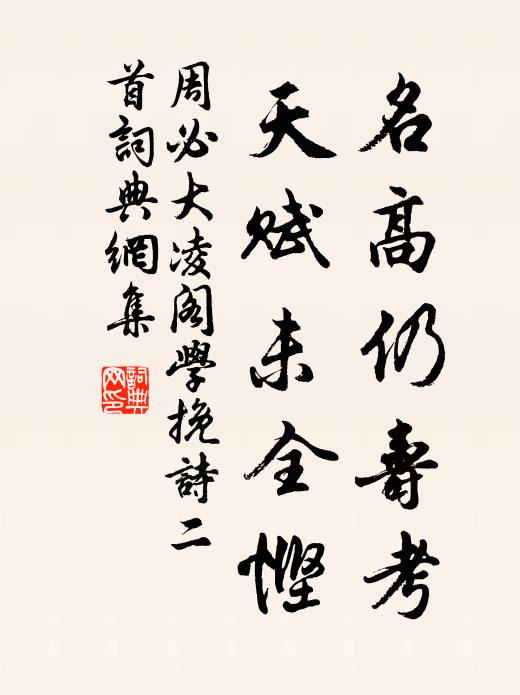 名高仍壽考
天賦未全慳
周必大凌閣學挽詩二
首詞典網集
詞典
网印